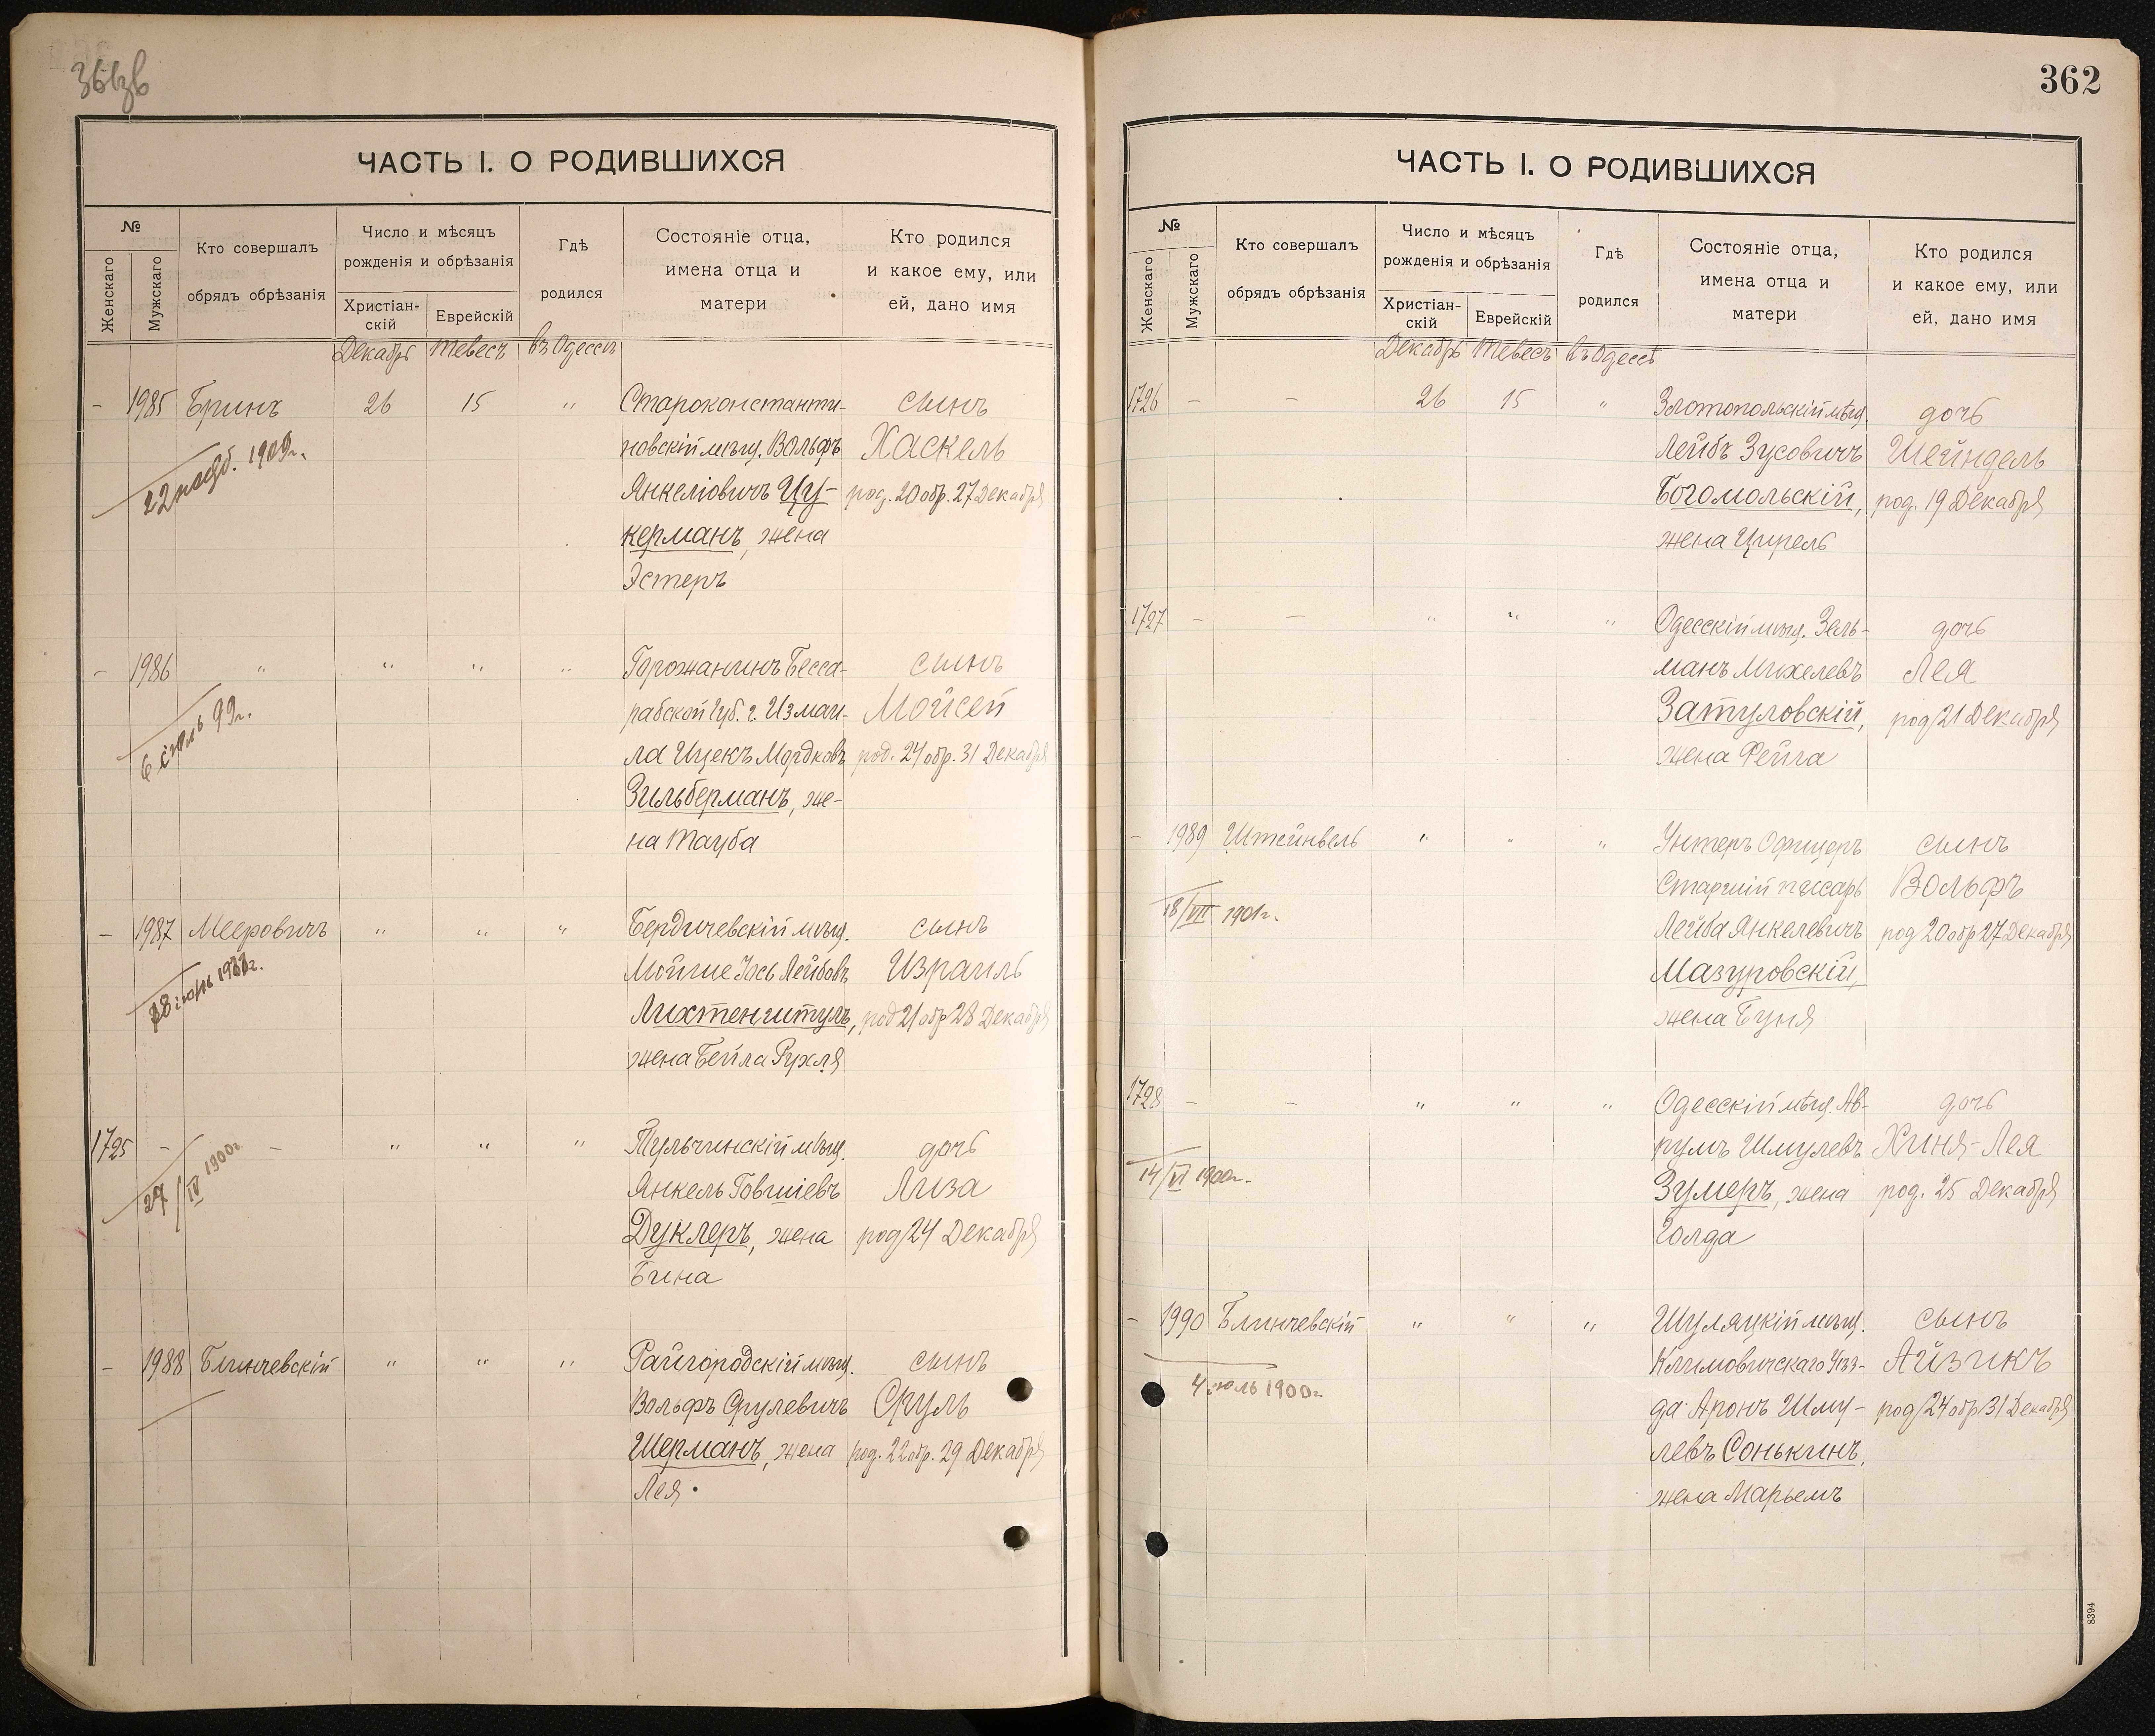 ЧАСТЬ I. О РОДИВШИХСЯ
№
Женскаго
Мужскаго
Кто совершалъ
обрядъ обрѣзанія
Число и мѣсяцъ
рожденія и обрѣзанія
Христіан-
скій
Еврейскій
Гдѣ
родился
Состояніе отца,
имена отца и
матери
Кто родился
и какое ему, или
ей, дано имя
Декабрь Тевесъ въ Одессѣ
- 1985 Бринъ 26 15 " Староконстанти- сынъ
новскій мѣщ. Вольфъ Хаскель
Янкеліовичъ Цу- род. 20 обр. 27 Декабря
керманъ, жена
Эстеръ
- 1986 " " " " Горожанинъ Бесса- сынъ
рабской Губ. г. Измаи- Мойсей
ла Ицекъ Мордковъ род. 24 обр. 31 Декабря
Зильберманъ, же-
на Тауба
6 іюль 99г.
- 1987 Мееровичъ " " " Бердичевскій мѣщ. сынъ
Мойше Іось Лейбовъ Израиль
Лихтенштулъ, род 21 обр 28 Декабря
жена Бейла Рухля
1725 - - " " " Тульчинскій мѣщ. дочь
Янкель Говшіевъ Лиза
Дуклеръ, жена род 24 Декабря
Бина
27/IV 1900г.
- 1988 Блинчевскій " " " Райгородскій мѣщ. сынъ
Вольфъ Срулевичъ Сруль
Шерманъ, жена род. 22 обр. 29 Декабря
Лея
362
ЧАСТЬ I. О РОДИВШИХСЯ
№
Женскаго
Мужскаго
Кто совершалъ
обрядъ обрѣзанія
Число и мѣсяцъ
рожденія и обрѣзанія
Христіан-
скій
Еврейскій
Гдѣ
родился
Состояніе отца,
имена отца и
матери
Кто родился
и какое ему, или
ей, дано имя
Декабрь Тевесъ въ Одессѣ
1726 - - 26 15 " Златопольскій мѣщ. дочь
Лейбъ Зусовичъ Шейндель
Богомольскій, род. 19 Декабря
жена Цирель
1727 - - " " " Одесскій мѣщ. Зель- дочь
манъ Михелевъ Лея
Затуловскій, род 21 Декабря
жена Фейга
- 1989 Штейнвель " " " Унтеръ Офицеръ сынъ
Старшій писарь Вольфъ
Лейба Янкелевичъ род 20 обр 27 Декабря
Мазуровскій,
жена Буня
18/VII 1901г.
1728 - - " " " Одесскій мѣщ. Ав- дочь
румъ Шмулевъ Хиня-Лея
Зумеръ, жена род. 25 Декабря
Голда
14/VI 1900г.
- 1990 Блинчевскій " " " Шуляцкій мѣщ. сынъ
Климовичскаго Уѣз- Айзикъ
да Аронъ Шму- род 24 обр 31 Декабря
левъ Сонькинъ,
жена Марьемъ
4 іюль 1900г
8394